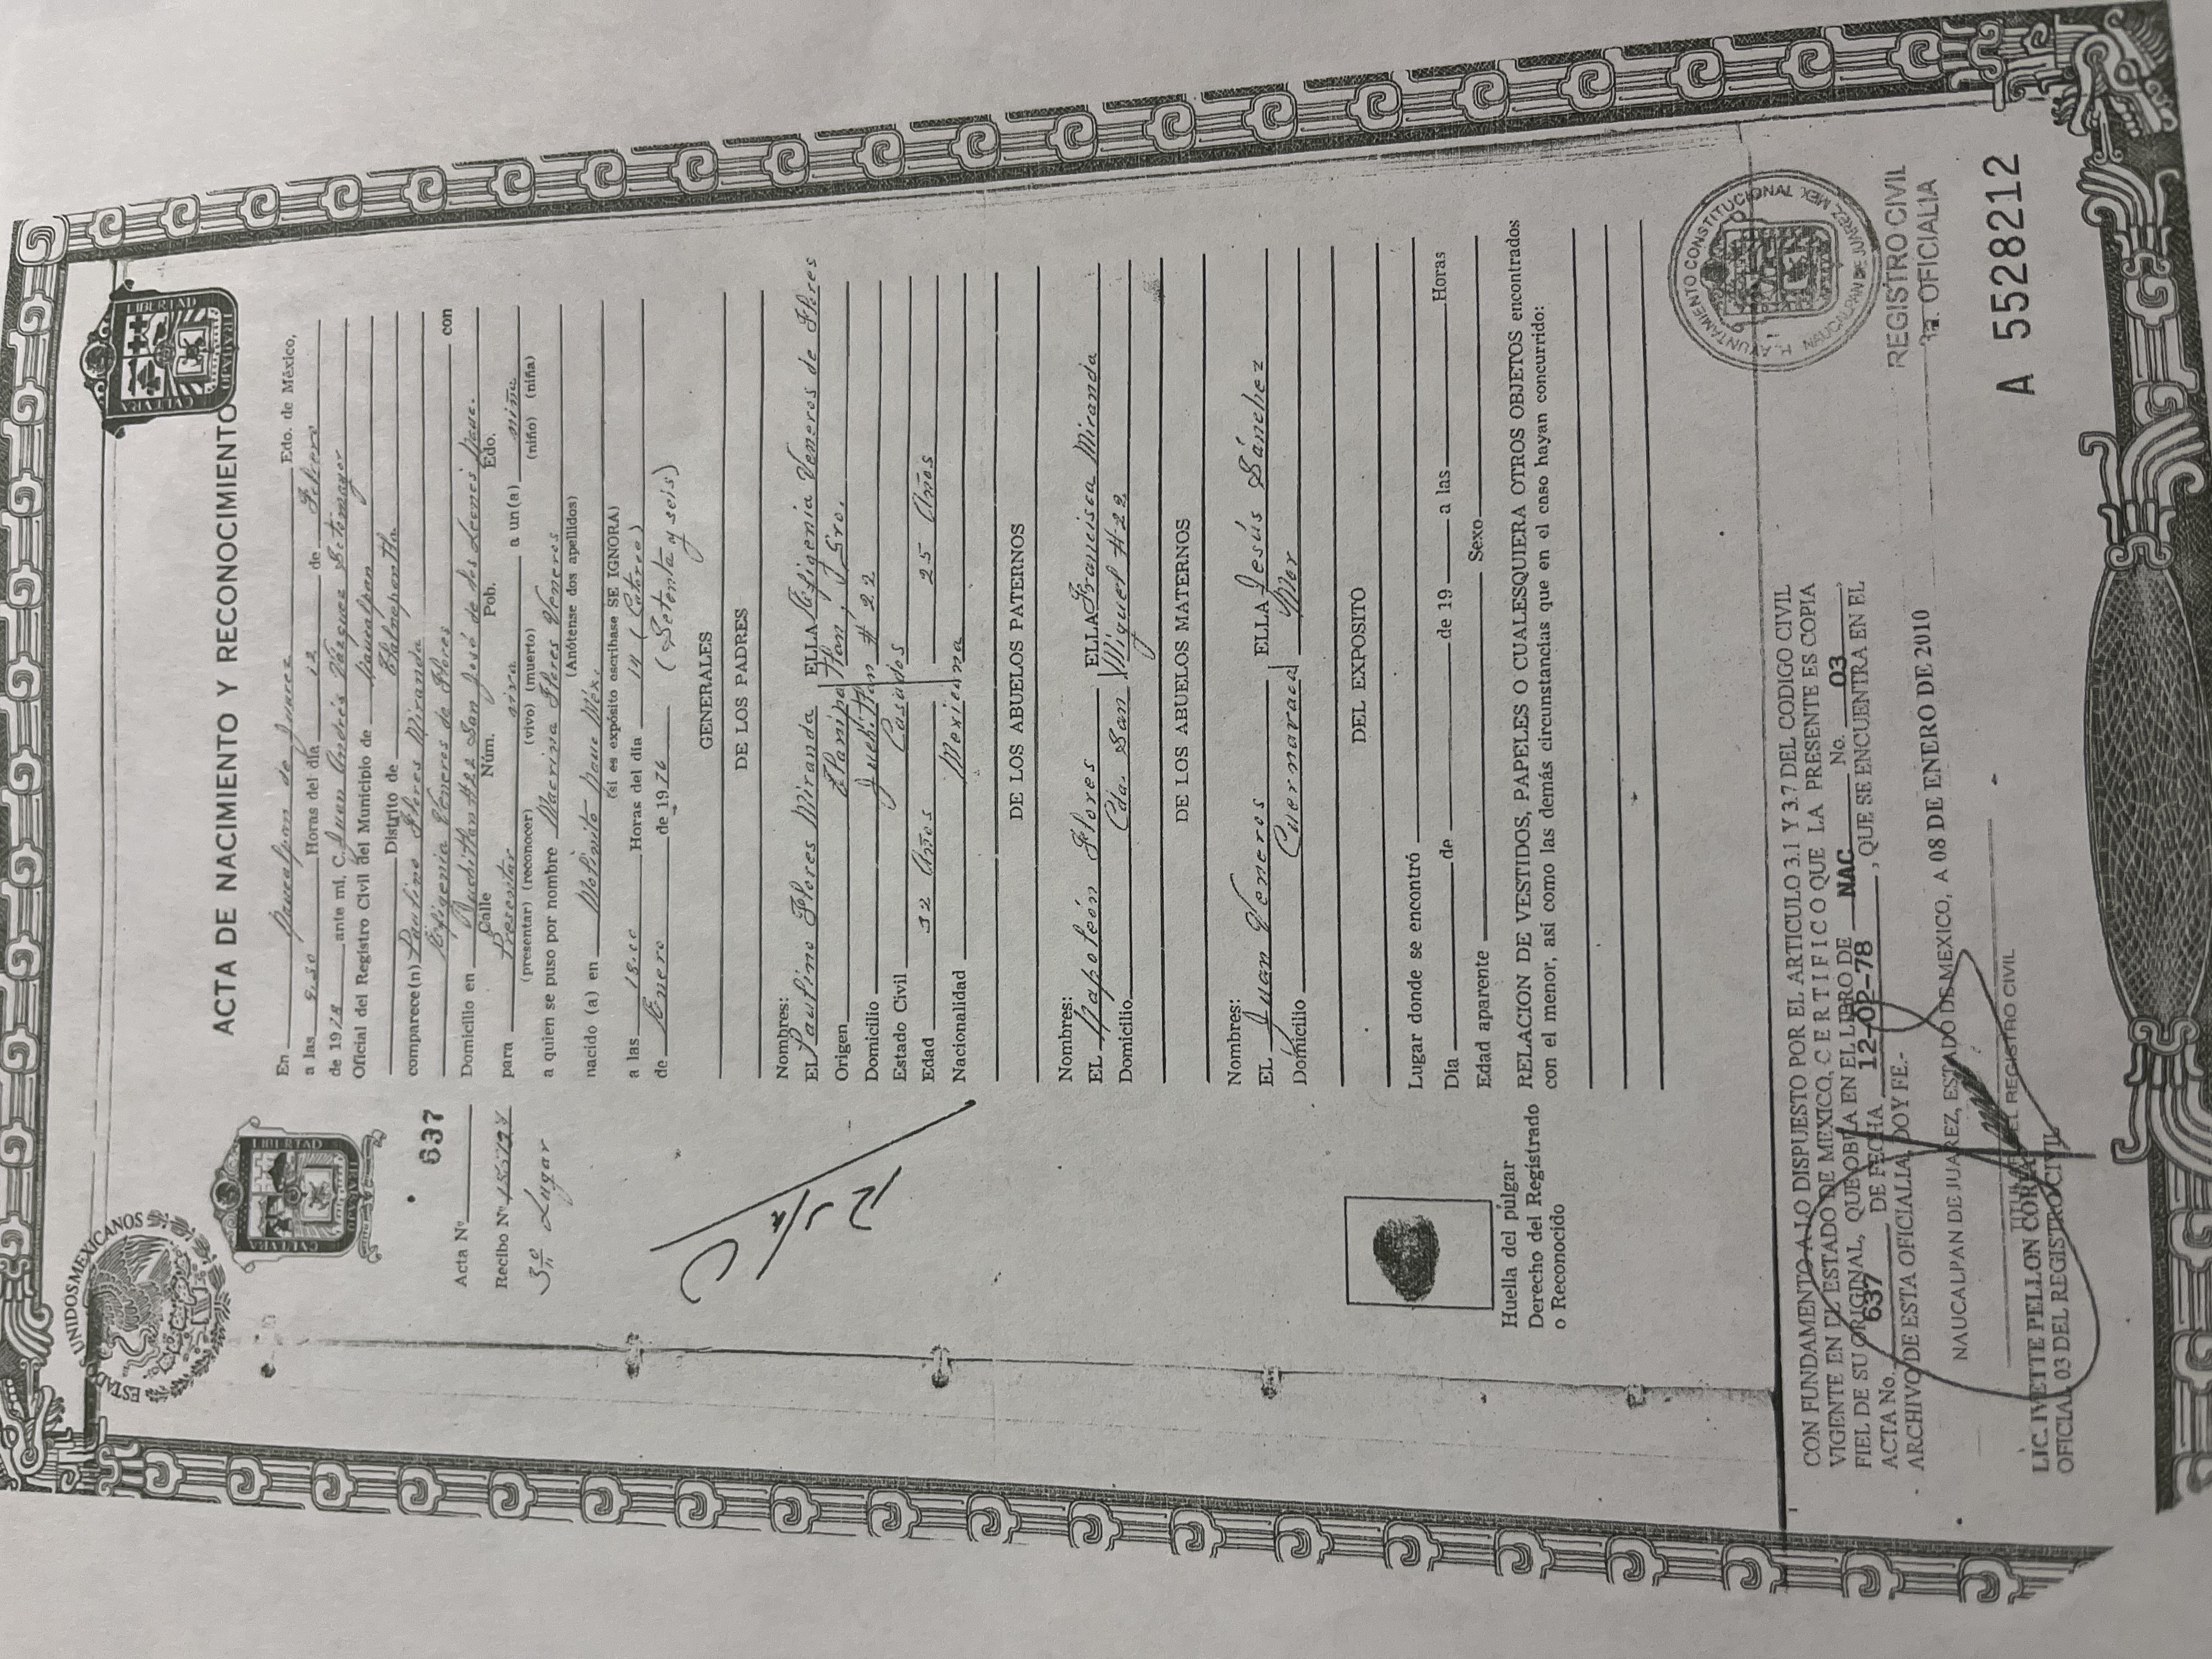 ESTADOS UNIDOS MEXICANOS
LIBERTAD
CULTURA
TRABAJO
LIBERTAD
CULTURA
TRABAJO
ACTA DE NACIMIENTO Y RECONOCIMIENTO
637
Acta Nº
Recibo Nº
3er Lugar
En Naucalpan de Juarez Edo. de México,
a las 9.30 Horas del día 12 de Febrero
de 1978 ante mí, C. Juan Andrés Vázquez Sotomayor
Oficial del Registro Civil del Municipio de Naucalpan
Distrito de Tlalnepantla
comparece(n) Paulino Flores Miranda
Efigenia Veneros de Flores con
Domicilio en Juchitlan #22 San José de los Leones Nauc.
Calle Núm. Pob. Edo.
para Presentar viva a un(a) niña
(presentar) (reconocer) (vivo) (muerto) (niño) (niña)
a quien se puso por nombre Macrina Flores Veneros
(Anótense dos apellidos)
nacido (a) en Molinito Nauc Méx.
(si es expósito escríbase SE IGNORA)
a las 18.00 Horas del día 14 (Catorce)
de Enero de 1976 (Setenta y seis)
GENERALES
DE LOS PADRES
Nombres:
EL Paulino Flores Miranda ELLA Efigenia Veneros de Flores
Origen Gro.
Domicilio Juchitlan # 22
Estado Civil Casados
Edad 32 Años 25 Años
Nacionalidad Mexicana
DE LOS ABUELOS PATERNOS
Nombres:
EL Napoleón Flores ELLA Francisca Miranda
Domicilio Cda. San Miguel #22
DE LOS ABUELOS MATERNOS
Nombres:
EL Juan Veneros ELLA Jesús Sánchez
Domicilio Cuernavaca Mor
DEL EXPOSITO
Lugar donde se encontró
Día de de 19 a las Horas
Edad aparente Sexo
RELACION DE VESTIDOS, PAPELES O CUALESQUIERA OTROS OBJETOS encontrados
con el menor, así como las demás circunstancias que en el caso hayan concurrido:
Huella del pulgar
Derecho del Registrado
o Reconocido
CON FUNDAMENTO A LO DISPUESTO POR EL ARTICULO 3.1 Y 3.7 DEL CODIGO CIVIL
VIGENTE EN EL ESTADO DE MEXICO, C E R T I F I C O QUE LA PRESENTE ES COPIA
FIEL DE SU ORIGINAL, QUE OBRA EN EL LIBRO DE NAC. No. 03
ACTA No. 637 DE FECHA 12-02-78, QUE SE ENCUENTRA EN EL
ARCHIVO DE ESTA OFICIALIA, DOY FE.-
NAUCALPAN DE JUAREZ, ESTADO DE MEXICO, A 08 DE ENERO DE 2010
TITULAR DEL REGISTRO CIVIL
LIC. IVETTE PELLON CORIA
OFICIAL 03 DEL REGISTRO CIVIL
H. AYUNTAMIENTO CONSTITUCIONAL
NAUCALPAN DE JUAREZ MEX
REGISTRO CIVIL
3a. OFICIALIA
A 5528212